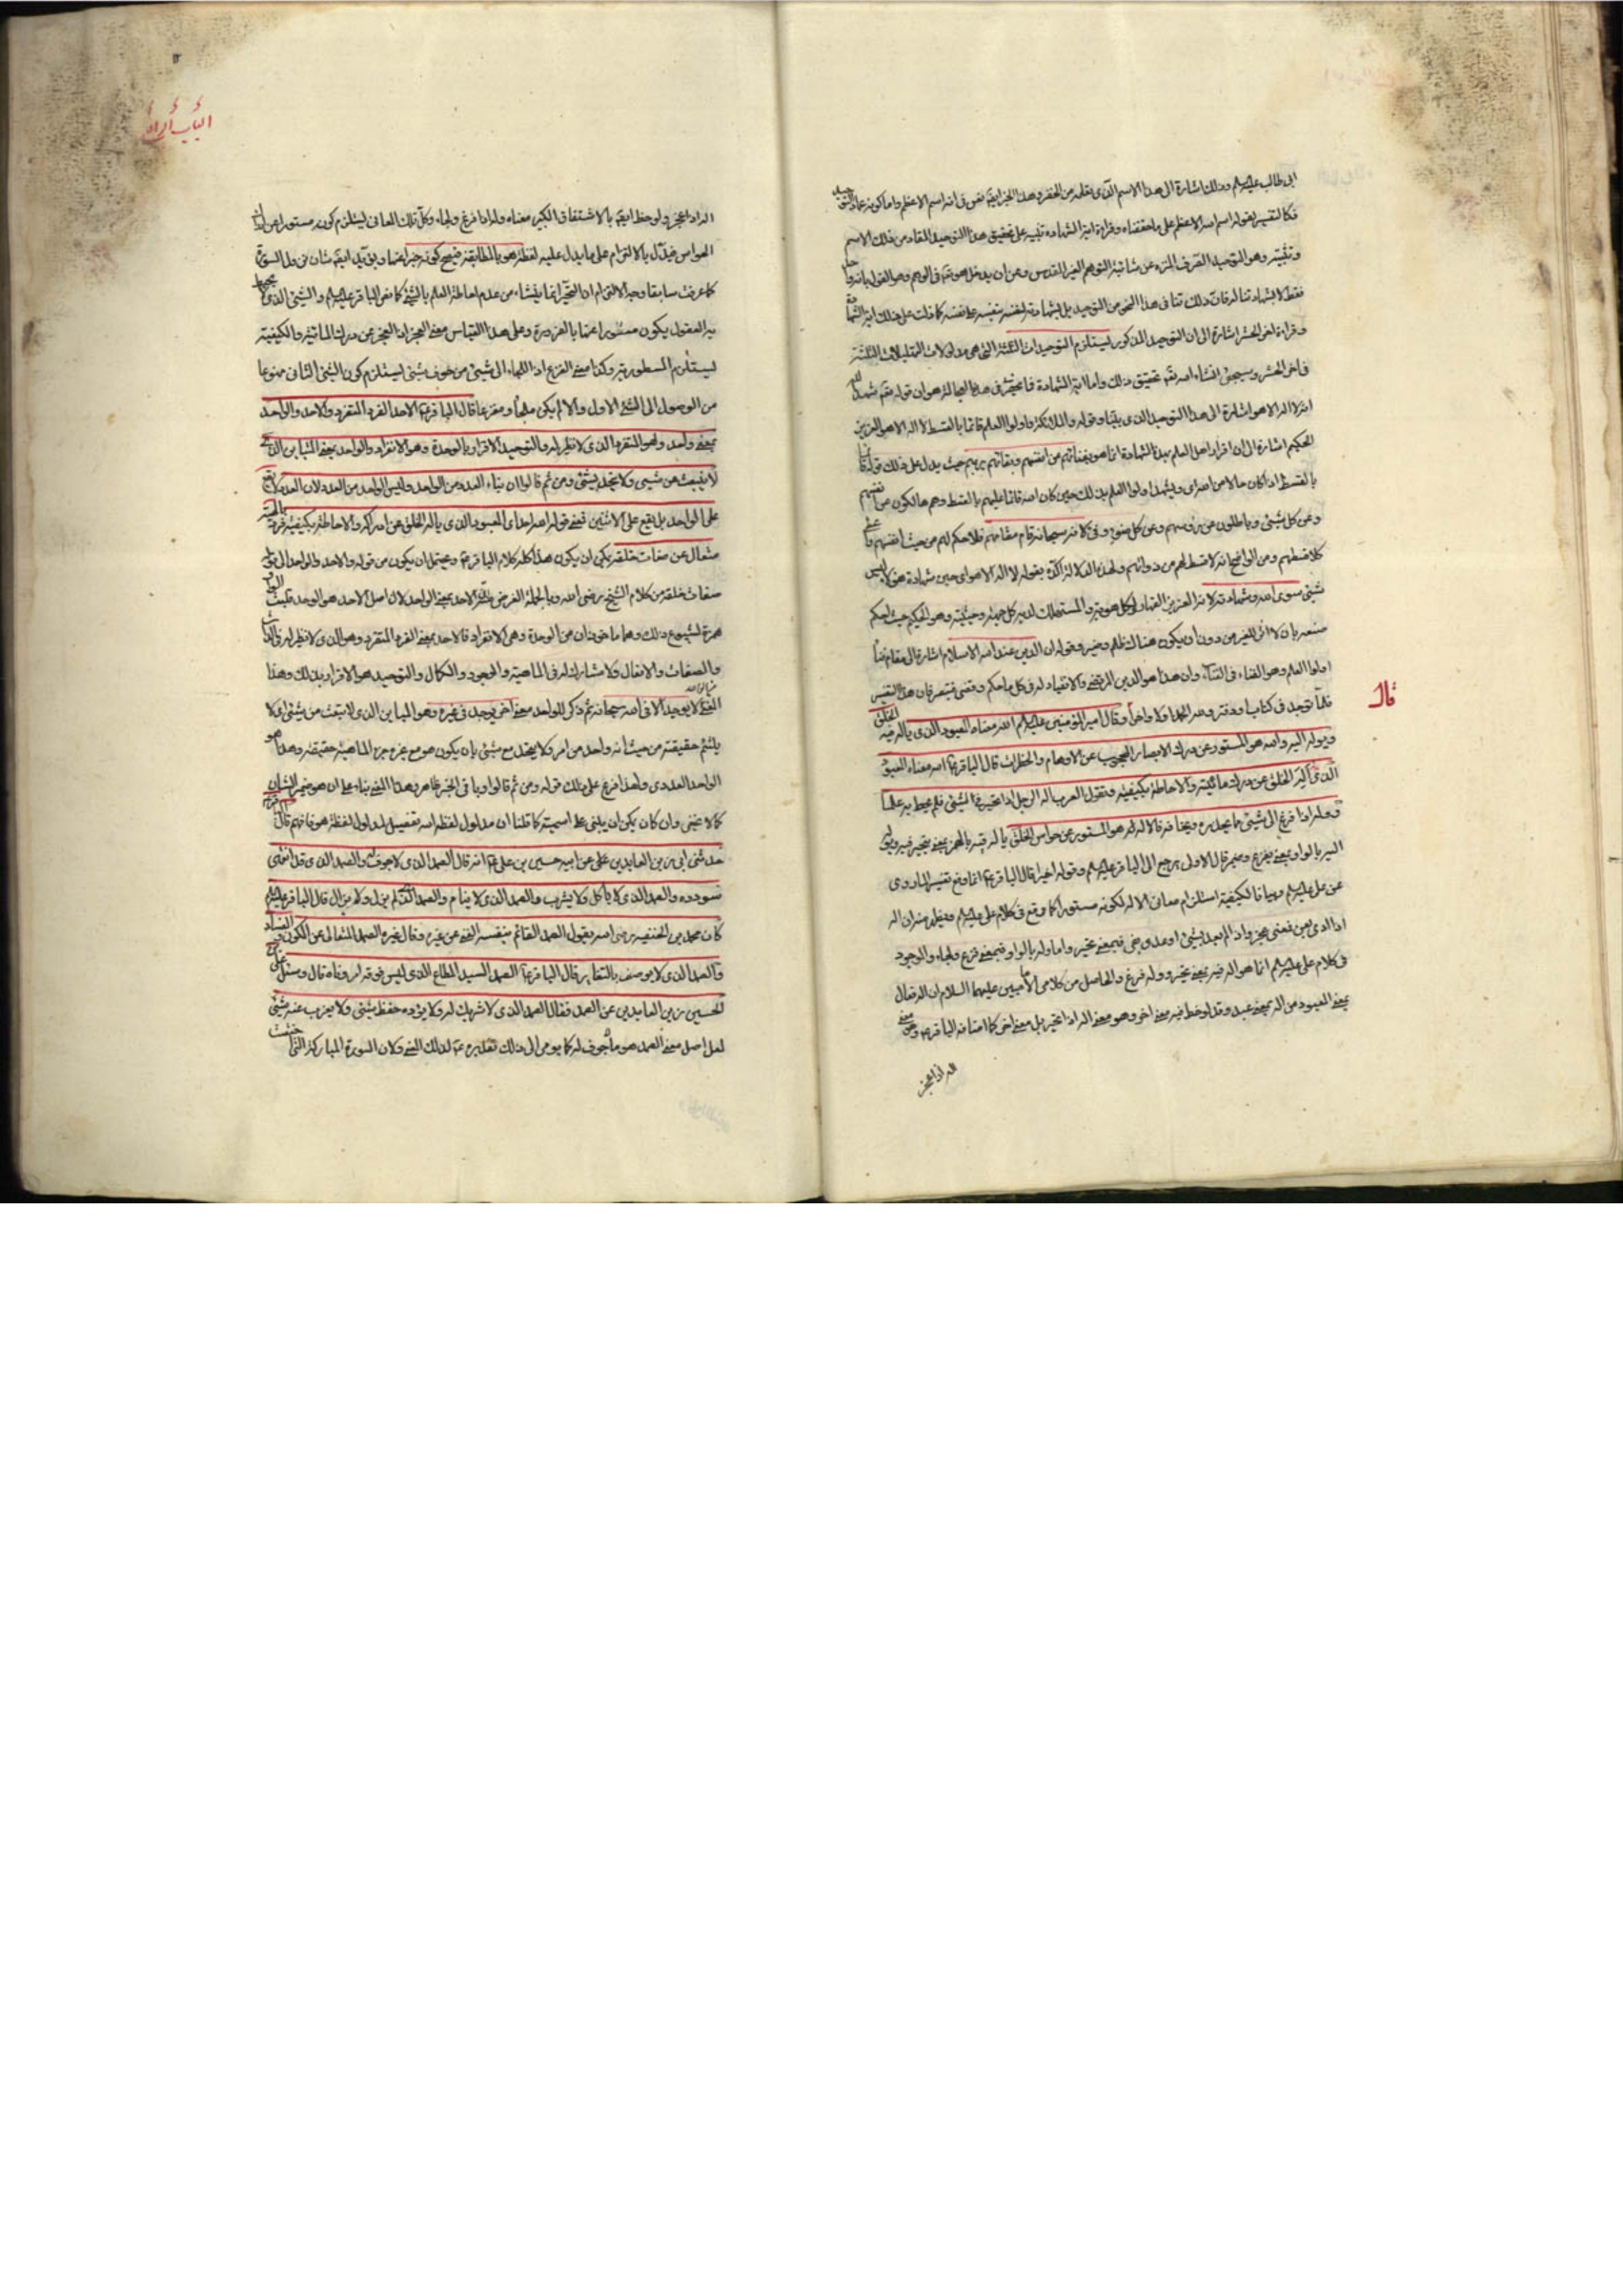 ابى طالب عليه السلم وذلك اشارة الى هذا الاسم الذى نقله من الخضر وهذا الخبر ايضا نص فى انه اسم الاعظم واما كونه عماد التوحيد
فكالتفسير لقوله اسم الله الاعظم على ما حققناه وقراءة اية الشهادة تنبيه على تحقيق هذا التوحيد المفاد من ذلك الاسم
وتثبيته وهو التوحيد الصرف المنزه عن شائبة التوهم الغير المقدس وعن ان يدخل هو تعالى فى الوهم وهو القول بانه واحد
فقط لا بشهادتنا له فان ذلك تنافى هذا النحو من التوحيد بل بشهادته لنفسه بنفسه على نفسه كما دلت على ذلك اية الشهادة
وقراءة اخر الحشر اشارة الى ان التوحيد المذكور يستلزم التوحيدات الثلثة التى هى مدلولات التهليلات الثلثة
فى اخر الحشر وسيجئ انشاء الله تعالى تحقيق ذلك واما اية الشهادة فما يحضر فى هذه العجالة هو ان قوله تعالى شهد الله
انه لا اله الا هو اشارة الى هذا التوحيد الذى بيناه وقوله والملائكة واولوا العلم قائما بالقسط لا اله الا هو العزيز
الحكيم اشارة الى ان اقرار اهل العلم بهذه الشهادة انما هو بفنائهم من انفسهم وبقائهم بربهم حيث يدل على ذلك قوله قائما
بالقسط اذا كان حالا من الله اى وليشهد اولوا العلم بذلك حين كان الله قائما عليهم بالقسط وهم هالكون من انفسهم
وعن كل شئ وباطلون عن رؤسهم وعن كل ضوء وفى كلامه سبحانه قام مقامهم فلا حكم لهم من حيث انفسهم
كلا قسط لهم ومن الواضح انه لا قسط لهم من ذواتهم ولهذه الدلالة اكده بقوله لا اله الا هو اى حين شهادة هؤلاء ليس
شئ سوى الله وشهادته لانه العزيز القهار لكل هوية والمستهلك لديه كل حيث وحيثية وهو الحكيم حيث حكم
منعه بان لا اثر للغير من دون ان يكون هناك ظلم وضير وقوله ان الدين عند الله الاسلام اشارة الى مقام فناء
اولوا العلم وهو الفناء فى الفناء وان هذا هو الدين المرتضى والانقياد له فى كل ما حكم وقضى فتبصر فان هذا التفسير
قلما توجد فى كتاب ودفتر وله الحمد اولا واخرا وقال امير المؤمنين عليه السلم الله معناه المعبود الذى ياله فيه الخلق
ويوله اليه والله هو المستور عن درك الابصار المحجوب عن الاوهام والخطرات قال الباقر ع الله معناه المعبود
الذى اله الخلق عن درك مائيته والاحاطة بكيفيته وتقول العرب اله الرجل اذا تحير فى الشئ فلم يحط به علما
ووله اذا فزع الى شئ مما يحذره ويخافه فالاله هو المستور عن حواس الخلق ياله فيه بالهمز بمعنى يتحير فيه ويوله
اليه بالواو بمعنى يفزع وضمير قال الاول يرجع الى الباقر عليه السلم وقوله اخيرا قال الباقر ع انما وقع تفسير المروى
عن على عليه السلم وبيانا لكيفية استلزام معانى الاله لكونه مستورا كما وقع فى كلام على عليه السلم
فى كلام على عليه السلم انما هو اله فيه بمعنى تحير ووله فزع والحاصل من كلامى الامامين عليهما السلام ان اله فعال
بمعنى المعبود من اله بمعنى عبد وقد لوحظ فيه معنى اخر وهو معنى اله اذا تحير بل معنى اخر كما افاده الباقر ع وهو معنى
اله اذا عجز
قال
الباب الرابع
اله اذا عجز ولوحظ ايضا بالاشتقاق الكبير معناه وله اذا فزع ولجاء وكل تلك المعانى يستلزم كونه مستورا عن
الحواس فيدل بالالتزام على ما يدل عليه لفظة هو بالمطابقة فيصح كونه خبرا عنها
كما عرفت سابقا وجه الالتزام اذ التحير انما ينشاء من عدم احاطة العلم بالشئ كما نص الباقر عليه السلم والشئ الذى
العقول يكون مستورا عنها بالضرورة وعلى هذا القياس معنى العجز اذ العجز عن درك المائية والكيفية
يستلزم المستورية وكذا معنى الفزع اذ اللجاء الى شئ من خوف شئ يستلزم كون الشئ الثانى ممنوعا
من الوصول الى الشئ الاول والا لم يكن ملجأ ومفزعا قال الباقر ع الاحد الفرد المتفرد والاحد والواحد
بمعنى واحد وهو المتفرد الذى لا نظير له والتوحيد الاقرار بالوحدة وهو الانفراد والواحد بمعنى المتباين الذى
لا ينبعث من شئ ولا يتحد بشئ ومن ثم قالوا ان بناء العدد من الواحد وليس الواحد من العدد لان العدد لا يقع
على الواحد بل يقع على الاثنين فمعنى قوله الله احد اى المعبود الذى ياله الخلق عن ادراكه والاحاطة بكيفيته فرد بالهيته
متعال عن صفات خلقه يمكن ان يكون هذا كله كلام الباقر ع ويحتمل ان يكون من قوله والاحد والواحد الى قوله
صفات خلقه من كلام الشيخ رضى الله وبالجملة الغرض تفسير الاحد بمعنى الواحد لان اصل الاحد هو الوحد قلبت الواو
همزة لشيوع ذلك وهما ماخوذان من الوحدة وهى الانفراد فالاحد بمعنى الفرد المتفرد وهو الذى لا نظير له فى الذات
والصفات والافعال ولا مشارك له فى الماهية والوجود والكمال والتوحيد هو الاقرار بذلك وهذا
المعنى لا يوجد الا فى الله سبحانه ثم ذكر للواحد معنى اخر يوجد فى غيره وهو المباين الذى لا ينبعث من شئ اى لا
يلتئم حقيقته من حيث انه واحد من امر ولا يتحد مع شئ بان يكون هو مع غيره جزء الماهية حقيقة وهذا هو
الواحد العددى ولهذا فرع على ذلك قوله ومن ثم قالوا وباقى الخبر ظاهر وهذا المعنى بناء على ان هو ضمير الشان
كما لا يخفى وان كان يمكن ان يبنى على اسميته كما قلنا ان مدلول لفظ الله تفصيل لمدلول لفظة هو فافهم قال الباقر ع
حدثنى ابى زين العابدين على عن ابيه حسين بن على ع انه قال الصمد الذى لا جوف له والصمد الذى قد انتهى
سودده والصمد الذى لا ياكل ولا يشرب والصمد الذى لا ينام والصمد الذى لم يزل ولا يزال قال الباقر عليه السلم
كان محمد بن الحنفية رضى الله يقول الصمد القائم بنفسه الغنى عن غيره وقال غيره الصمد المتعالى عن الكون والفساد
والصمد الذى لا يوصف بالتغاير قال الباقر ع الصمد السيد المطاع الذى ليس فوقه امر وناه قال وسئل على
الحسين زين العابدين عن الصمد فقال الصمد الذى لا شريك له ولا يؤده حفظ شئ ولا يعزب عنه شئ
لعل اصل معنى الصمد هو ما لا جوف له كما يومى الى ذلك تقديره ع لذلك المعنى ولان السورة المباركة التى